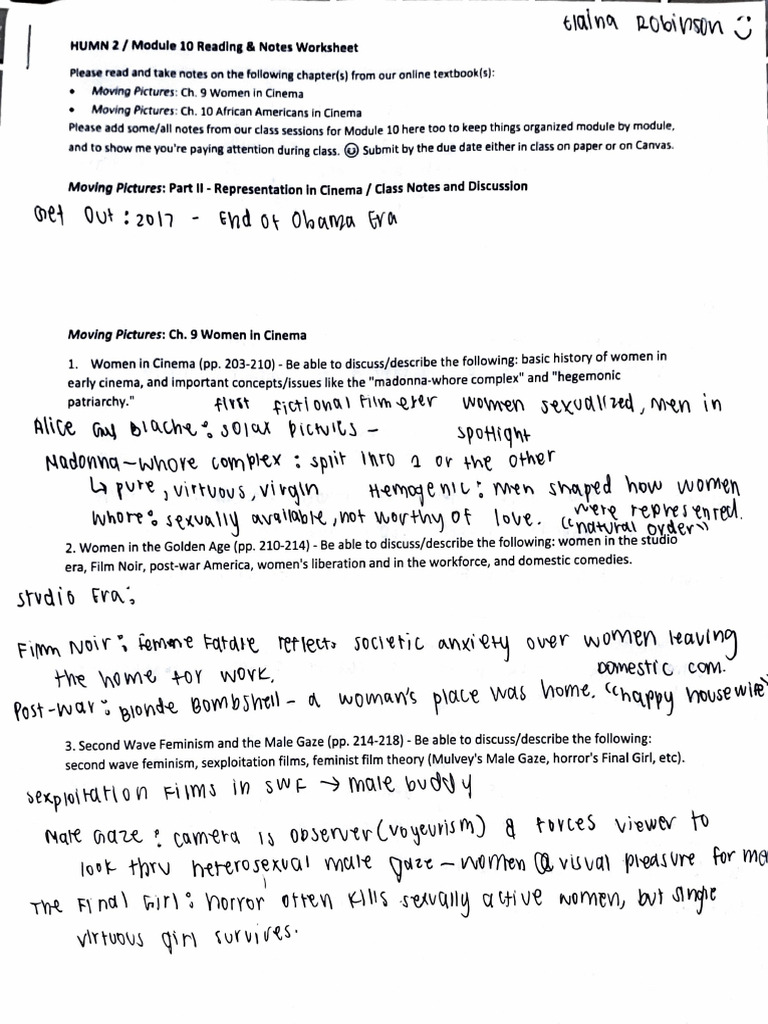 Elaina Robinson
HUMN 2 / Module 10 Reading & Notes Worksheet
Please read and take notes on the following chapter(s) from our online textbook(s):
• Moving Pictures: Ch. 9 Women in Cinema
• Moving Pictures: Ch. 10 African Americans in Cinema
Please add some/all notes from our class sessions for Module 10 here too to keep things organized module by module,
and to show me you're paying attention during class. ☺ Submit by the due date either in class on paper or on Canvas.
Moving Pictures: Part II - Representation in Cinema / Class Notes and Discussion
Get Out: 2017 - End of Obama Era
Moving Pictures: Ch. 9 Women in Cinema
1. Women in Cinema (pp. 203-210) - Be able to discuss/describe the following: basic history of women in
early cinema, and important concepts/issues like the "madonna-whore complex" and "hegemonic
patriarchy."
first fictional film ever women sexualized, men in
Alice Guy Blache: Solax Pictures - spotlight
Madonna-Whore complex: split into 1 or the other
↳ pure, virtuous, virgin Hemogenic: men shaped how women
Whore: sexually available, not worthy of love. were represented.
"natural order"
2. Women in the Golden Age (pp. 210-214) - Be able to discuss/describe the following: women in the studio
era, Film Noir, post-war America, women's liberation and in the workforce, and domestic comedies.
Studio Era:
Film Noir: femme fatale reflects societic anxiety over women leaving
the home for work. Domestic com.
Post-war: Blonde Bombshell - a woman's place was home. "happy housewife"
3. Second Wave Feminism and the Male Gaze (pp. 214-218) - Be able to discuss/describe the following:
second wave feminism, sexploitation films, feminist film theory (Mulvey's Male Gaze, horror's Final Girl, etc).
Sexploitation Films in SWF → male buddy
Male Gaze: camera is observer (voyeurism) & forces viewer to
look thru heterosexual male gaze - women @ visual pleasure for me
The Final Girl: horror often kills sexually active women, but single
virtuous girl survives.